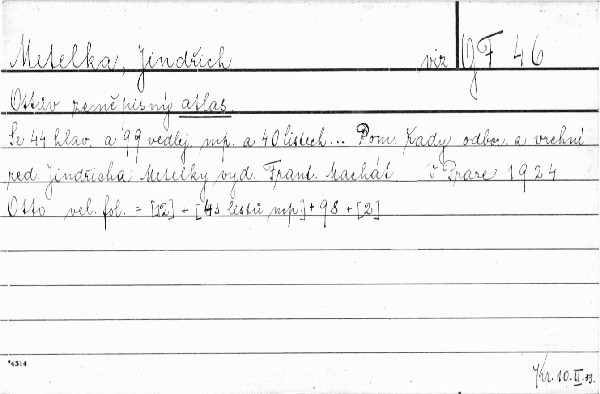 Metelka, Jindřich viz GF 46
Ottův zeměpisný atlas.
Se 44 hlav. a 99 vedlej. mp. a 40 listech... Pom. řady odbor. a vrchní
red. Jindřicha Metelky vyd. Frant. Machát. V Praze 1924
Otto vel. fol. = [12] + [43 listů mp] + 98 + [2]
*4314
Kr. 10.II.33.